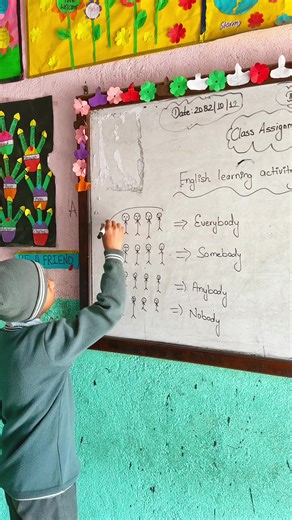 Date: 2082/10/12
Class Assignm
English learning activitie
⇒ Everybody
⇒ Somebody
⇒ Anybody
⇒ Nobody
A
FRIEND
Sharing